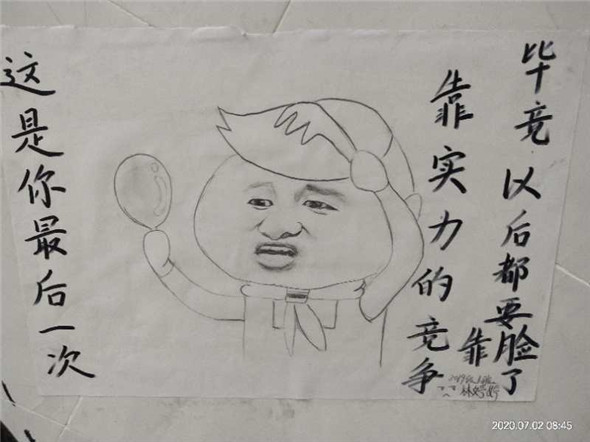 这是你最后一次
靠实力的竞争
毕竟以后都要靠脸了
2020.07.02 08:45